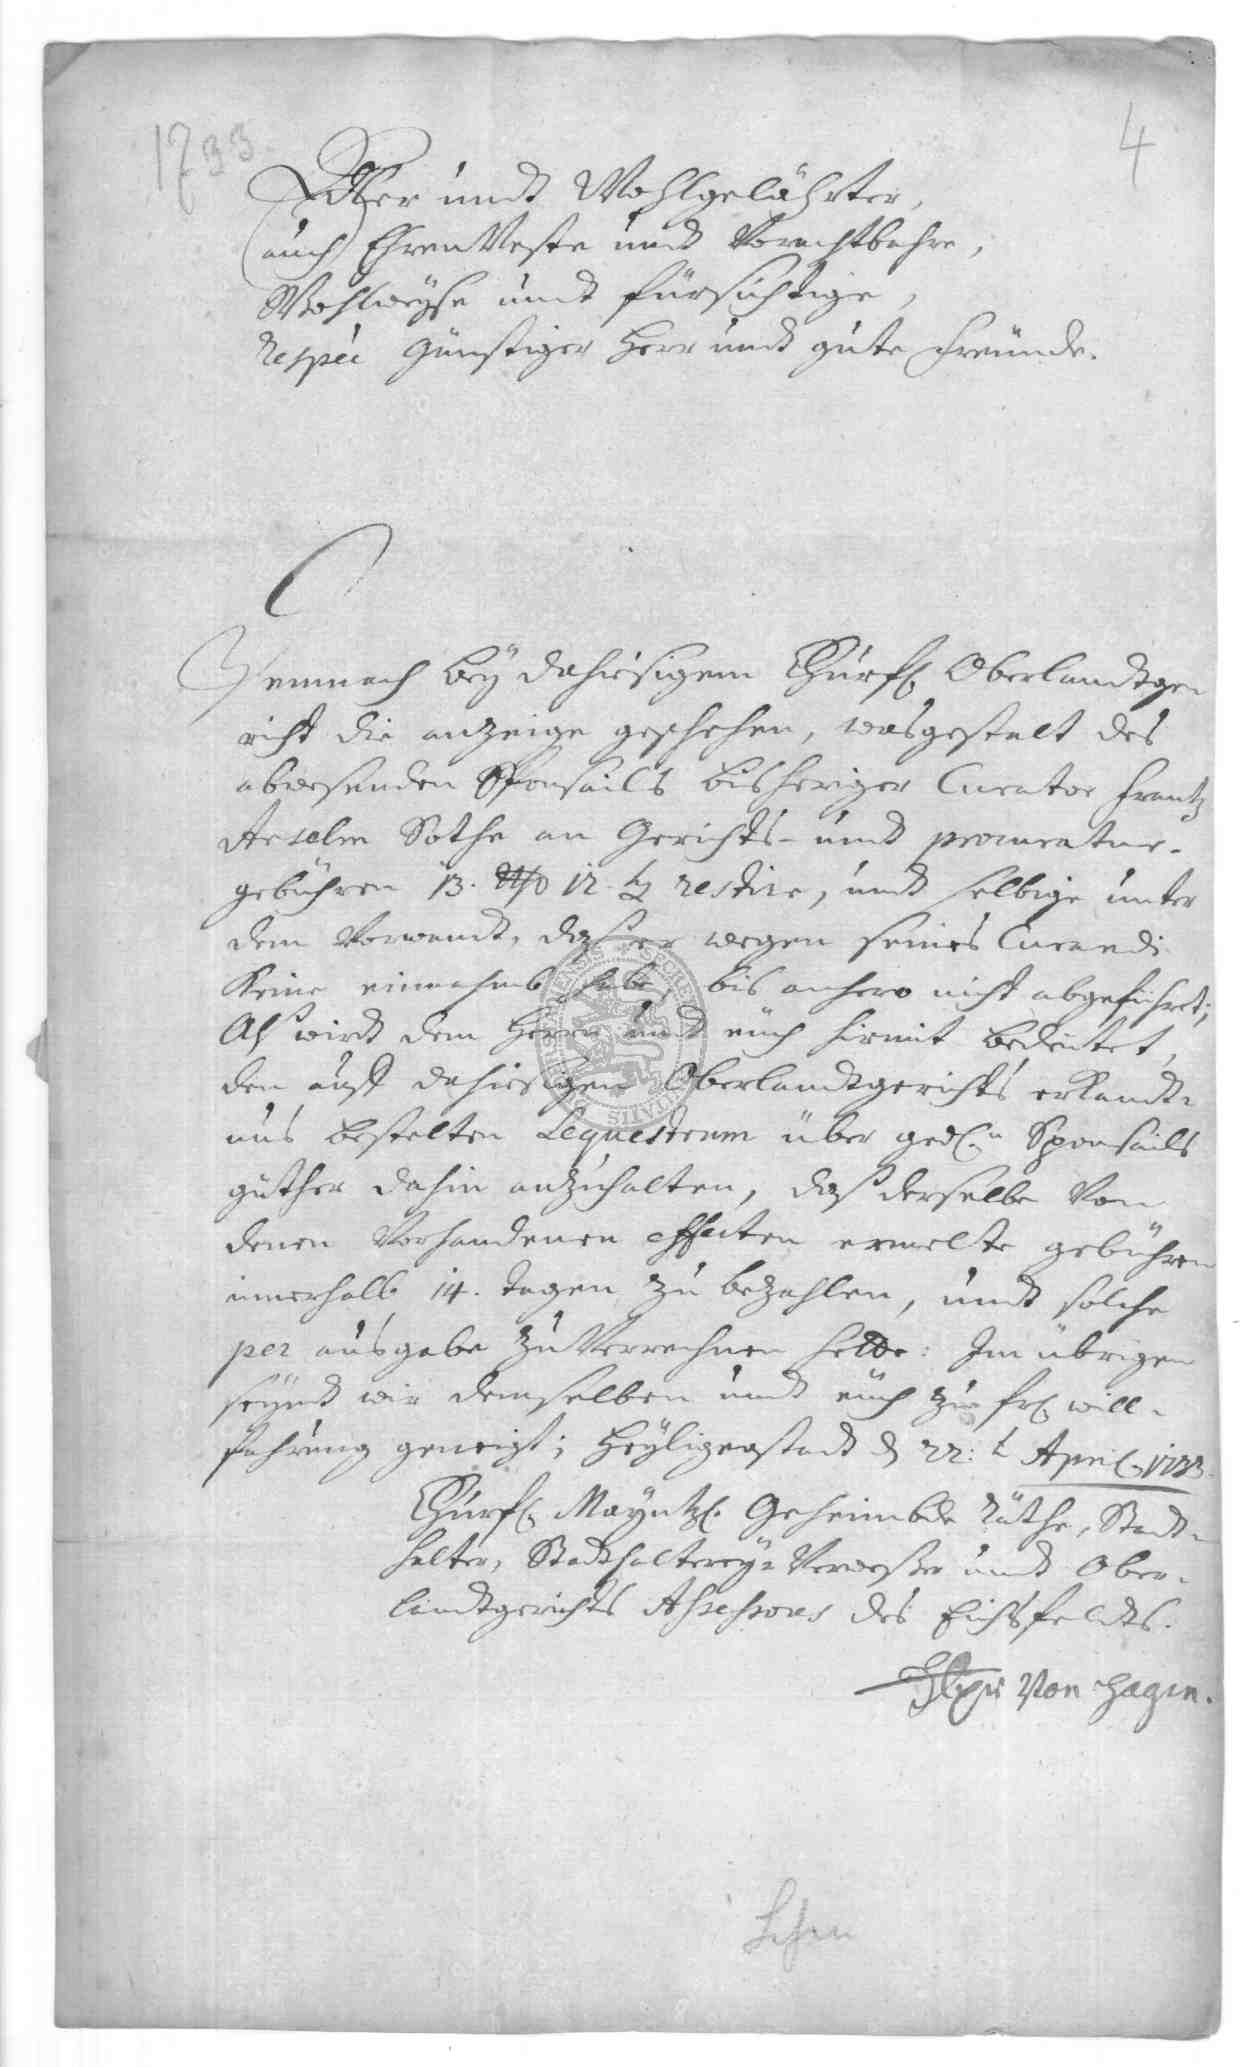 1733
4
Edler undt Wohlgelährter,
auch EhrenVeste undt Vorachtbahre,
Wohlweyse undt fürsichtige,
Respéé günstiger Herr undt gute Freünde.
Demnach bey dahiesigem Churfl. Oberlandtge
richt die anzeige geschehen, wasgestalt des
abwesenden Sponsails bisheriger Curator Frantz
Anselm Bothe an Gerichts- undt procuratur-
gebühren 13. 12. restire, undt selbige unter
dem Vorwandt, daß er wegen seines Curandi
Keine einnahmb habe, bis anhero nicht abgeführt;
Alß wirdt dem Herrn undt euch hiermit bedeütet,
den auß dahiesigem Oberlandtgerichts erKandt-
nus bestelten Sequestrum über gedl.n Sponsails
güther dahin anzuhalten, daß derselbe Von
denen Vorhandenen effecten ermelte gebühren
innerhalb 14. tagen zu bezahlen, undt solche
per ausgabe zu Verrechnen habe: Im übrigen
seyndt wir demselben undt euch zu frl. will-
fahrung geneigt; Heyligenstadt d 22.t April 1733.
Churfl. Mayntzl. Geheimbde Räthe, Stadt-
halter, Stadthalterey-Verweßer undt Ober-
landtgerichts Assessores des Eichsfeldts.
Von Hagen.